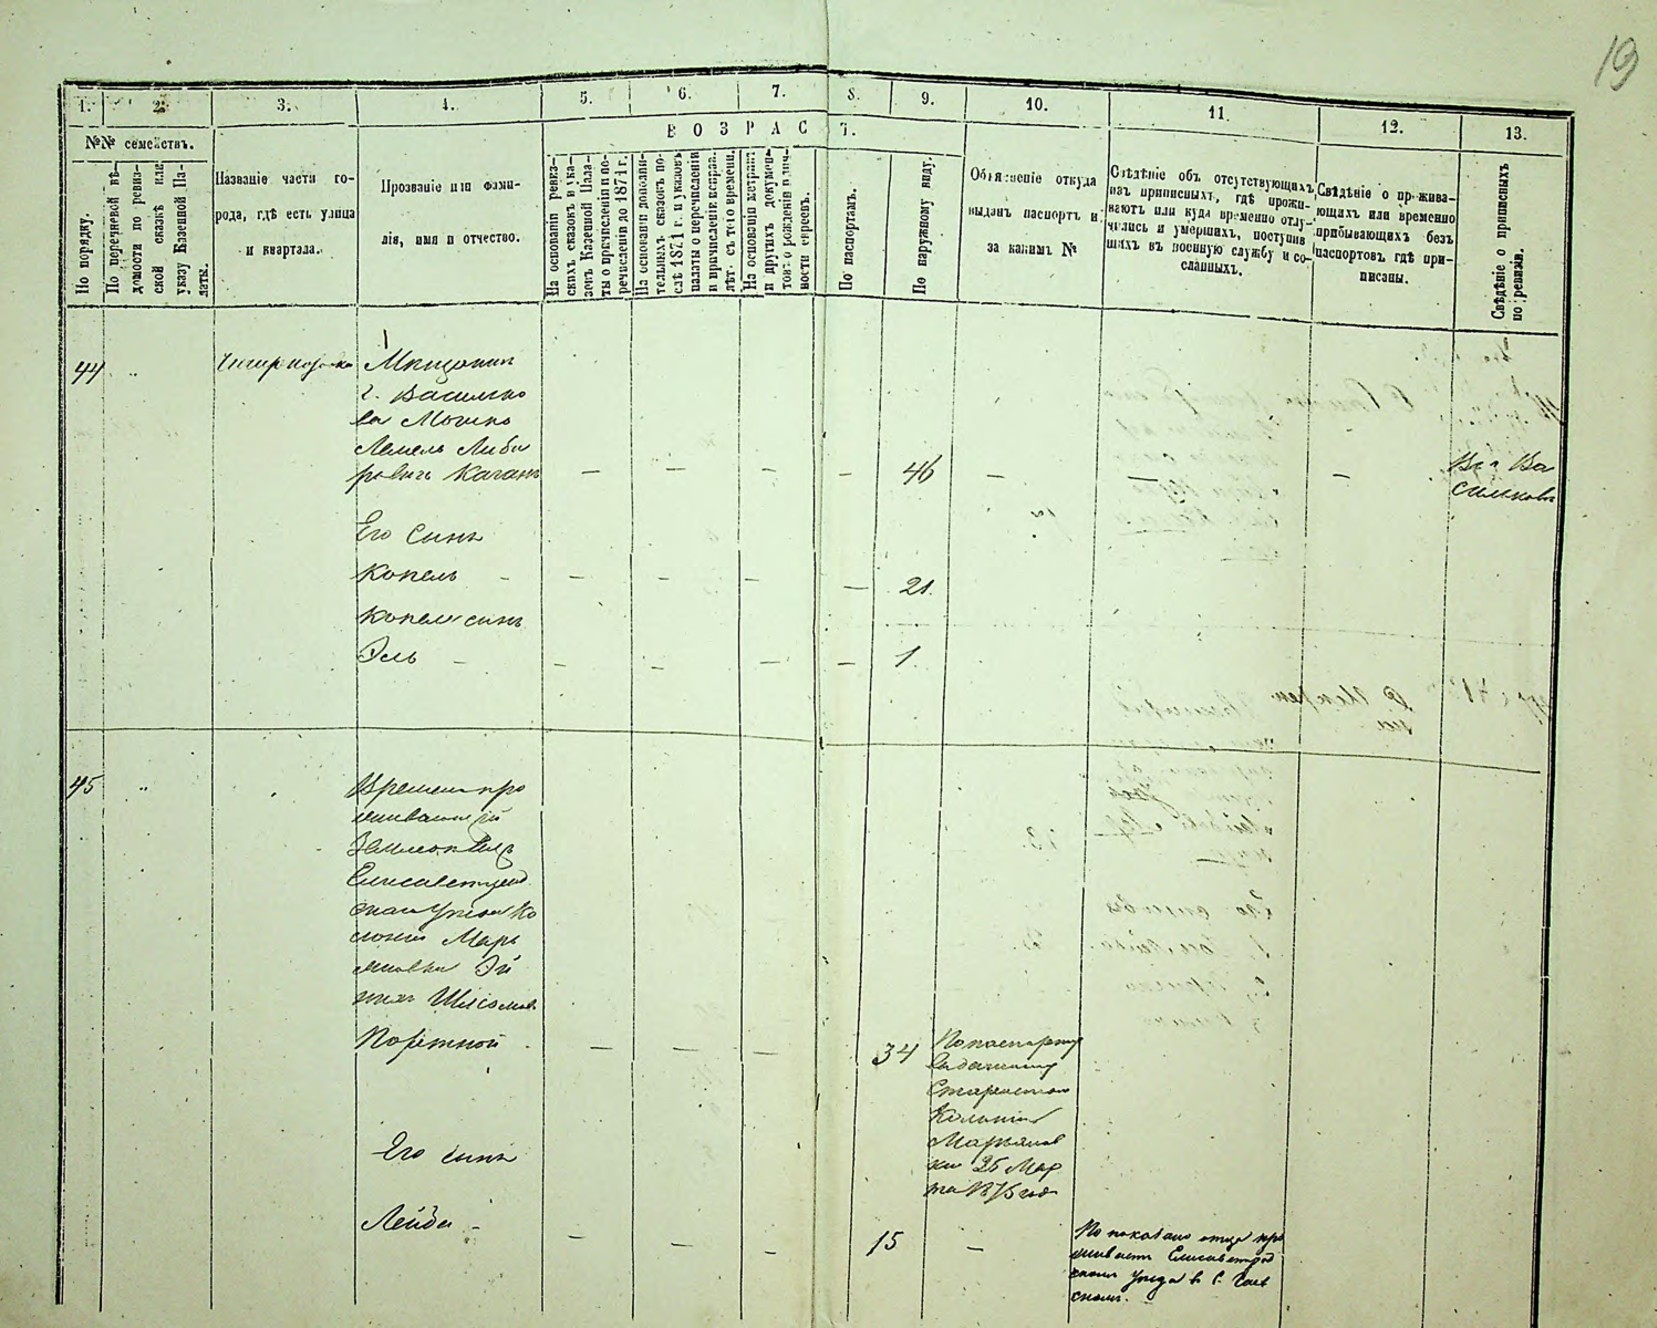 19
1. 2. 3. 4. 5. 6. 7. 8. 9. 10. 11. 12. 13.
№№ семействъ.
ВОЗРАСТ.
По порядку.
По перечневой вѣ-
домости по ревиз-
ской сказкѣ или
указу Казенной Па-
латы.
Названіе части го-
рода, гдѣ есть улица
и квартала.
Прозваніе или фами-
лія, имя и отчество.
На основаніи ревиз-
скихъ сказокъ и ука-
зовъ Казенной Пала-
ты о причисленіи и пе-
речисленіи до 1871 г.
На основаніи дополни-
тельныхъ сказокъ по-
слѣ 1871 г. и указовъ
палаты о перечисленіи
и причисленіе исправ.
лѣт. съ того времени.
На основаніи метрикъ
и другихъ докумен-
товъ о рожденіи и лич-
ности евреевъ.
По паспортамъ.
По наружному виду.
Объясненіе откуда
выданъ паспортъ и
за какимъ №
Свѣдѣніе объ отсутствующихъ
изъ приписныхъ, гдѣ прожи-
ваютъ или куда временно отлу-
чились и умершихъ, поступив-
шихъ въ военную службу и со-
сланныхъ.
Свѣдѣніе о прожива-
ющихъ или временно
прибывающихъ безъ
паспортовъ гдѣ при-
писаны.
Свѣдѣніе о приписныхъ
по ревизіи.
44 "
Мещанин
г. Василько
ва Мошко
Лемель Либе
ровичъ Каганъ — — — — 46 — — —
Васильков
Его Сынъ
Копель - — — — — 21.
Копеля сынъ
Эль — — — — — 1.
45 "
Времен про
живающій
Елисаветград
скаго Уезда Ко
лоніи Марь
яновки Эй
Шлiомов
Порѣтной — — — 34
По паспорту
выданному
Старостою
Колоніи
Марьянов
ки 25 Мар
та 1875 года
Его сынъ
Лейба - — — — 15 —
По показанію отца про
живает Елисаветград
скаго уезда в С.